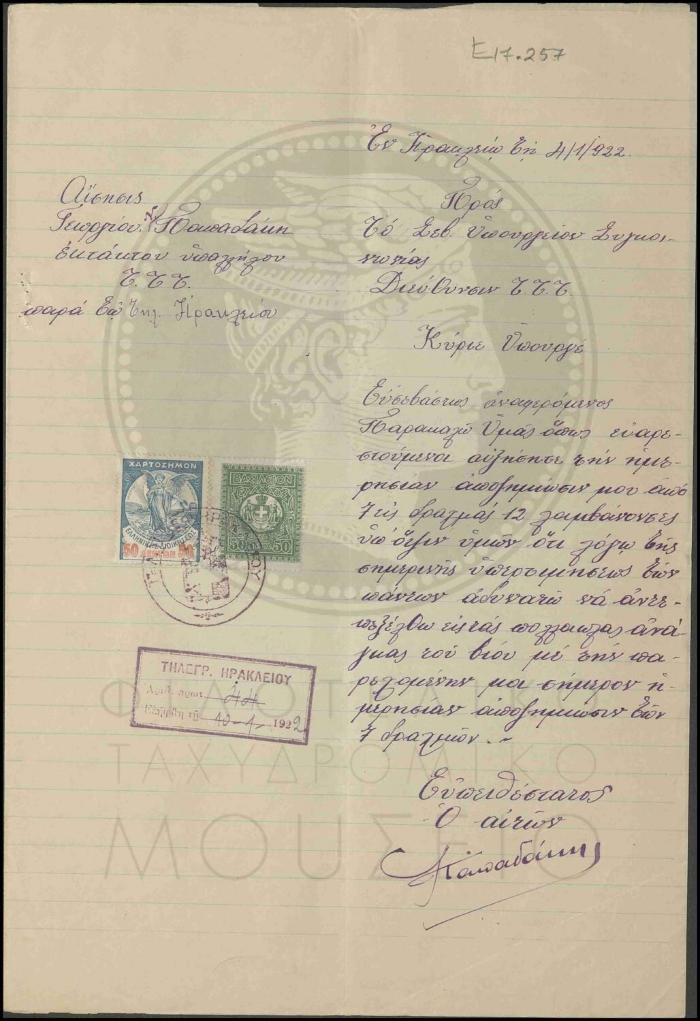 Ε17.257
Ἐν Ἡρακλείῳ τῇ 4/1/922
Αἴτησις
Γεωργίου Ν. Παπαδάκη
ἐκτάκτου ὑπαλλήλου
Τ.Τ.Τ.
παρά τῷ Τηλ. Ἡρακλείου
Πρός
Τό Σεβ. Ὑπουργεῖον Συγκοι-
νωνίας
Διεύθυνσιν Τ.Τ.Τ.
Κύριε Ὑπουργέ
Εὐσεβάστως ἀναφερόμενος
Παρακαλῶ Ὑμᾶς ὅπως εὐαρε-
στούμενοι αὐξήσητε τήν ἡμε-
ρησίαν ἀποζημίωσιν μου ἀπό
7 εἰς δραχμάς 12 λαμβάνοντες
ὑπ' ὄψιν ὑμῶν ὅτι λόγῳ τῆς
σημερινῆς ὑπερτιμήσεως τῶν
πάντων ἀδυνατῶ νά ἀντε-
πεξέλθω εἰς τάς πολλαπλάς ἀνά
γκας τοῦ βίου μέ τήν πα-
ρεχομένην μοι σήμερον ἡ-
μερησίαν ἀποζημίωσιν τῶν
7 δραχμῶν.
Εὐπειθέστατος
Ὁ αἰτῶν
Παπαδάκης
ΧΑΡΤΟΣΗΜΟΝ
50 ΛΕΠΤΩΝ 50
50 50
ΤΗΛΕΓΡ. ΗΡΑΚΛΕΙΟΥ
Ἀριθ. πρωτ. 44
Ἐλήφθη τῇ 10-1-1922
ΦΙΛΟΤΕΛΙΚΟ
ΤΑΧΥΔΡΟΜΙΚΟ
ΜΟΥΣΕΙΟ